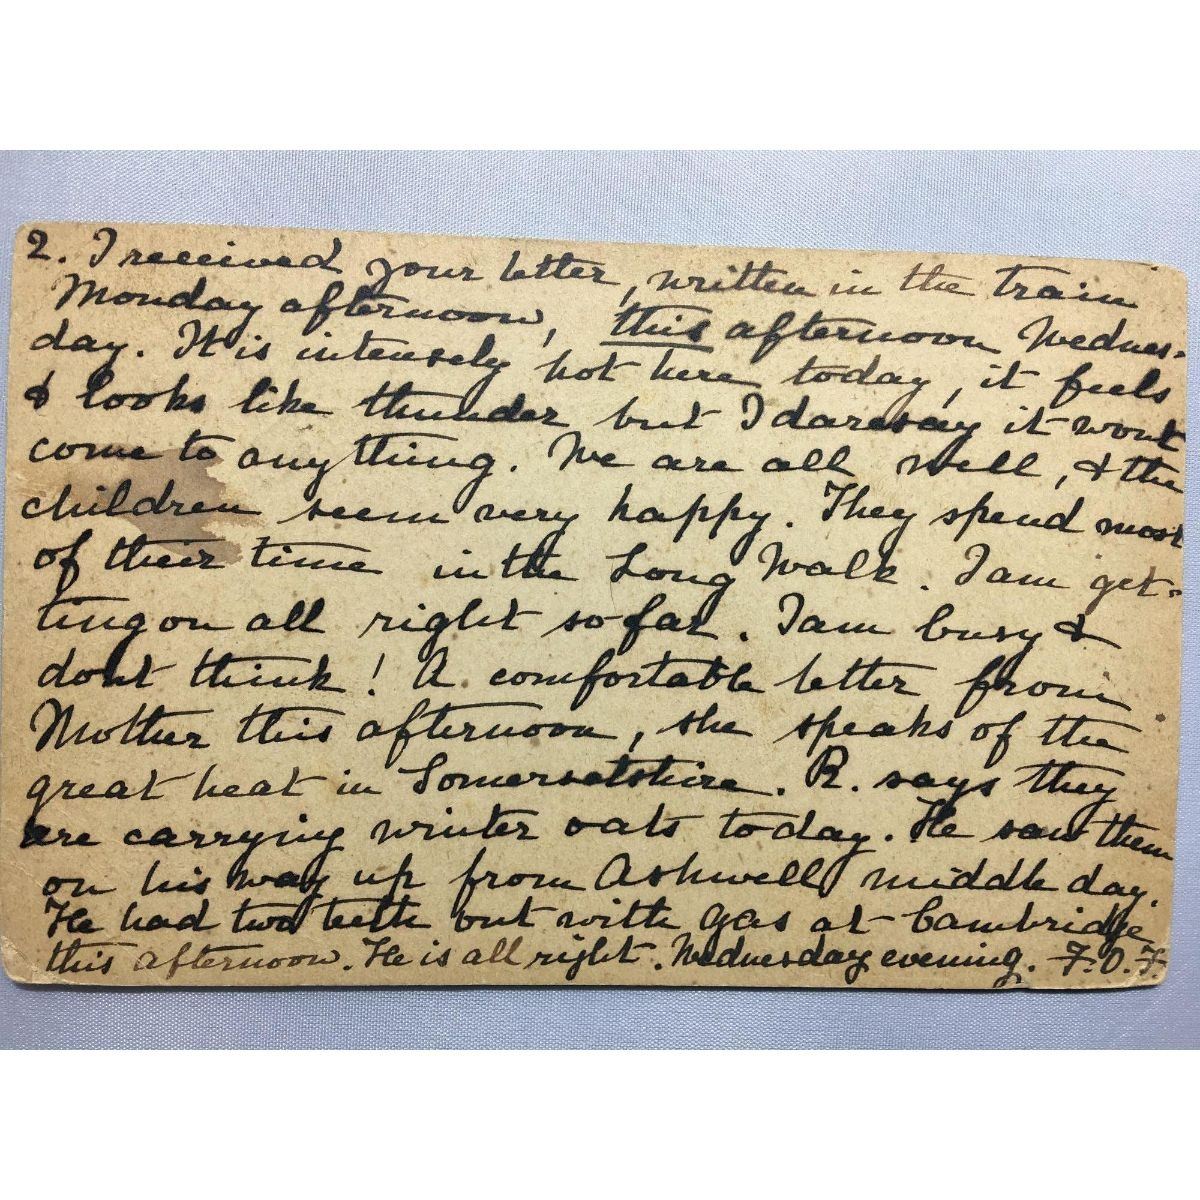 2. I received your letter, written in the train
Monday afternoon, this afternoon Wednes-
day. It is intensely hot here today, it feels
& looks like thunder but I daresay it wont
come to anything. We are all well, & the
children seem very happy. They spend most
of their time in the Long Walk. I am get-
ting on all right so far. I am busy &
dont think! A comfortable letter from
Mother this afternoon, she speaks of the
great heat in Somersetshire. R. says they
are carrying winter oats today. He saw them
on his way up from Ashwell middle day.
He had two teeth out with gas at Cambridge
this afternoon. He is all right. Wednesday evening. F.O.F.